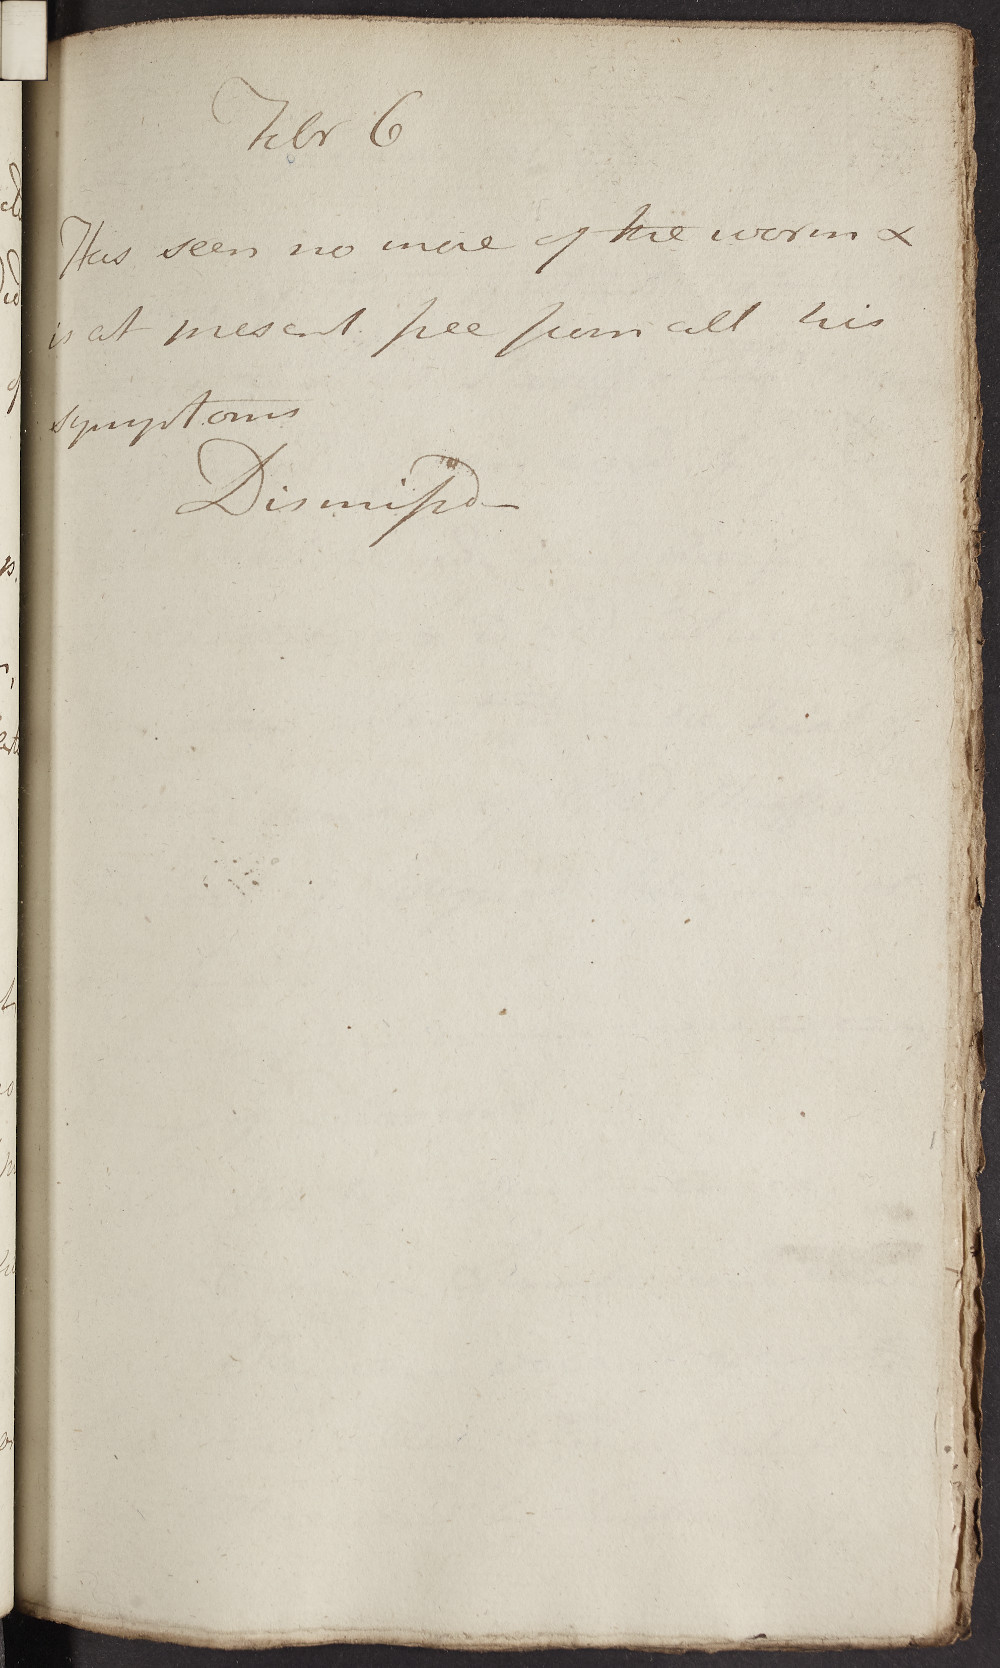 Febr 6
Has seen no more of the worm &
is at present free from all his
symptoms
Dismiſsd